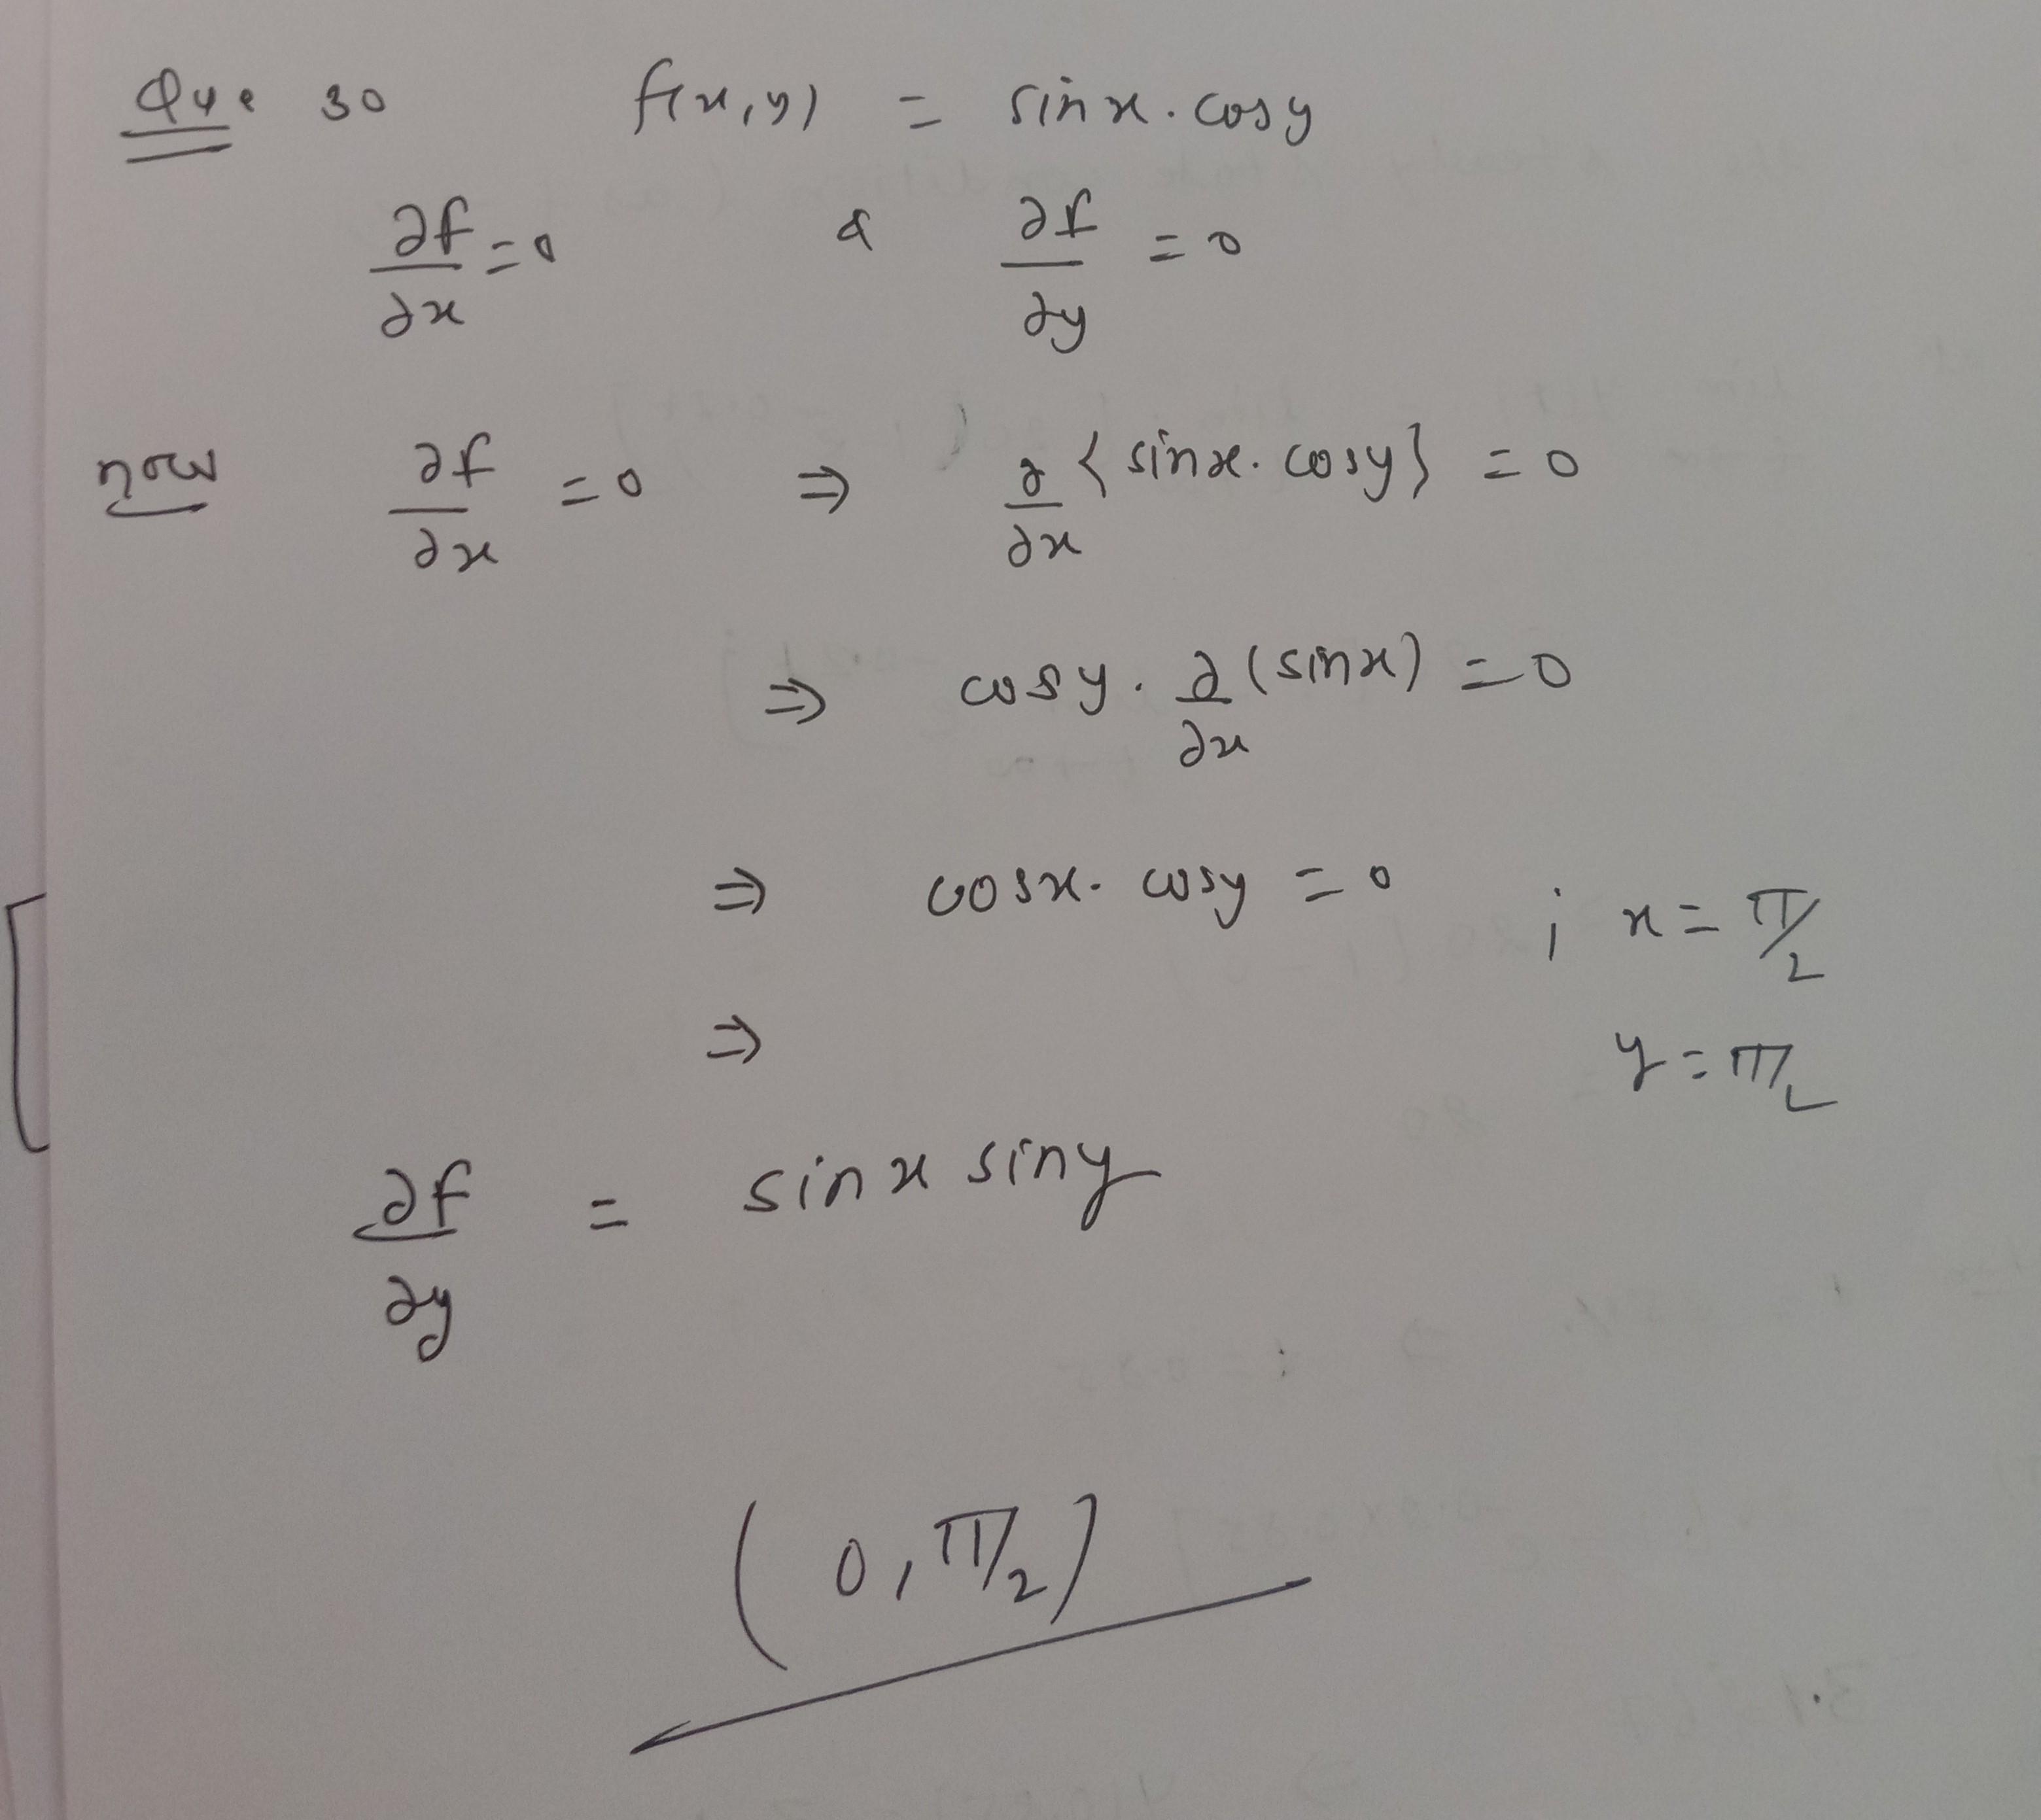 Que 30 f(x,y) = sinx.cosy
∂f/∂x = 0 & ∂f/∂y = 0
now ∂f/∂x = 0 ⇒ ∂/∂x {sinx.cosy} = 0
⇒ cosy. ∂/∂x (sinx) = 0
⇒ cosx. cosy = 0 ; x = π/2
⇒ y = π/2
∂f/∂y = sinx siny
(0, π/2)